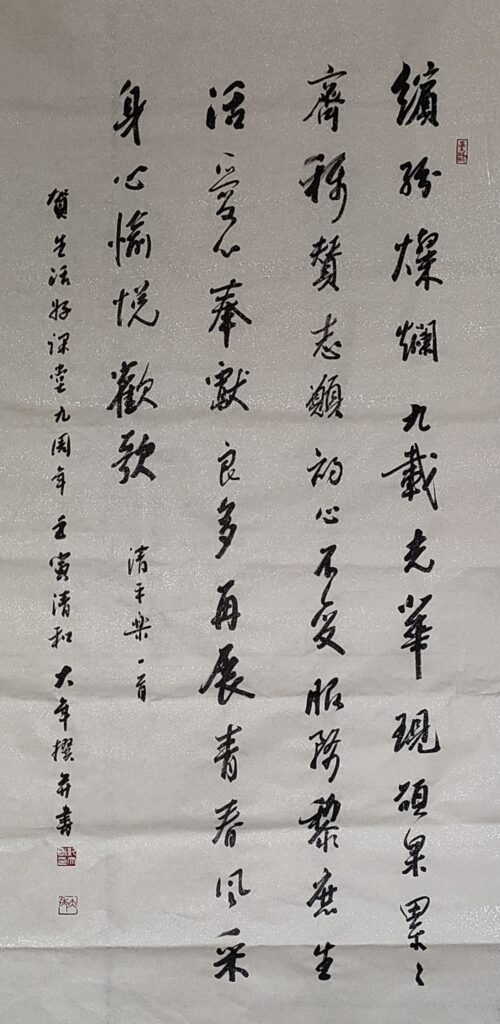 繽紛燦爛九載光華現碩果累々
齊稱贊志願初心不變服務黎庶生
活愛心奉獻良多再展青春風采
身心愉悅歡歌
清平樂一首
賀生活好課堂九周年壬寅清和大年撰并書